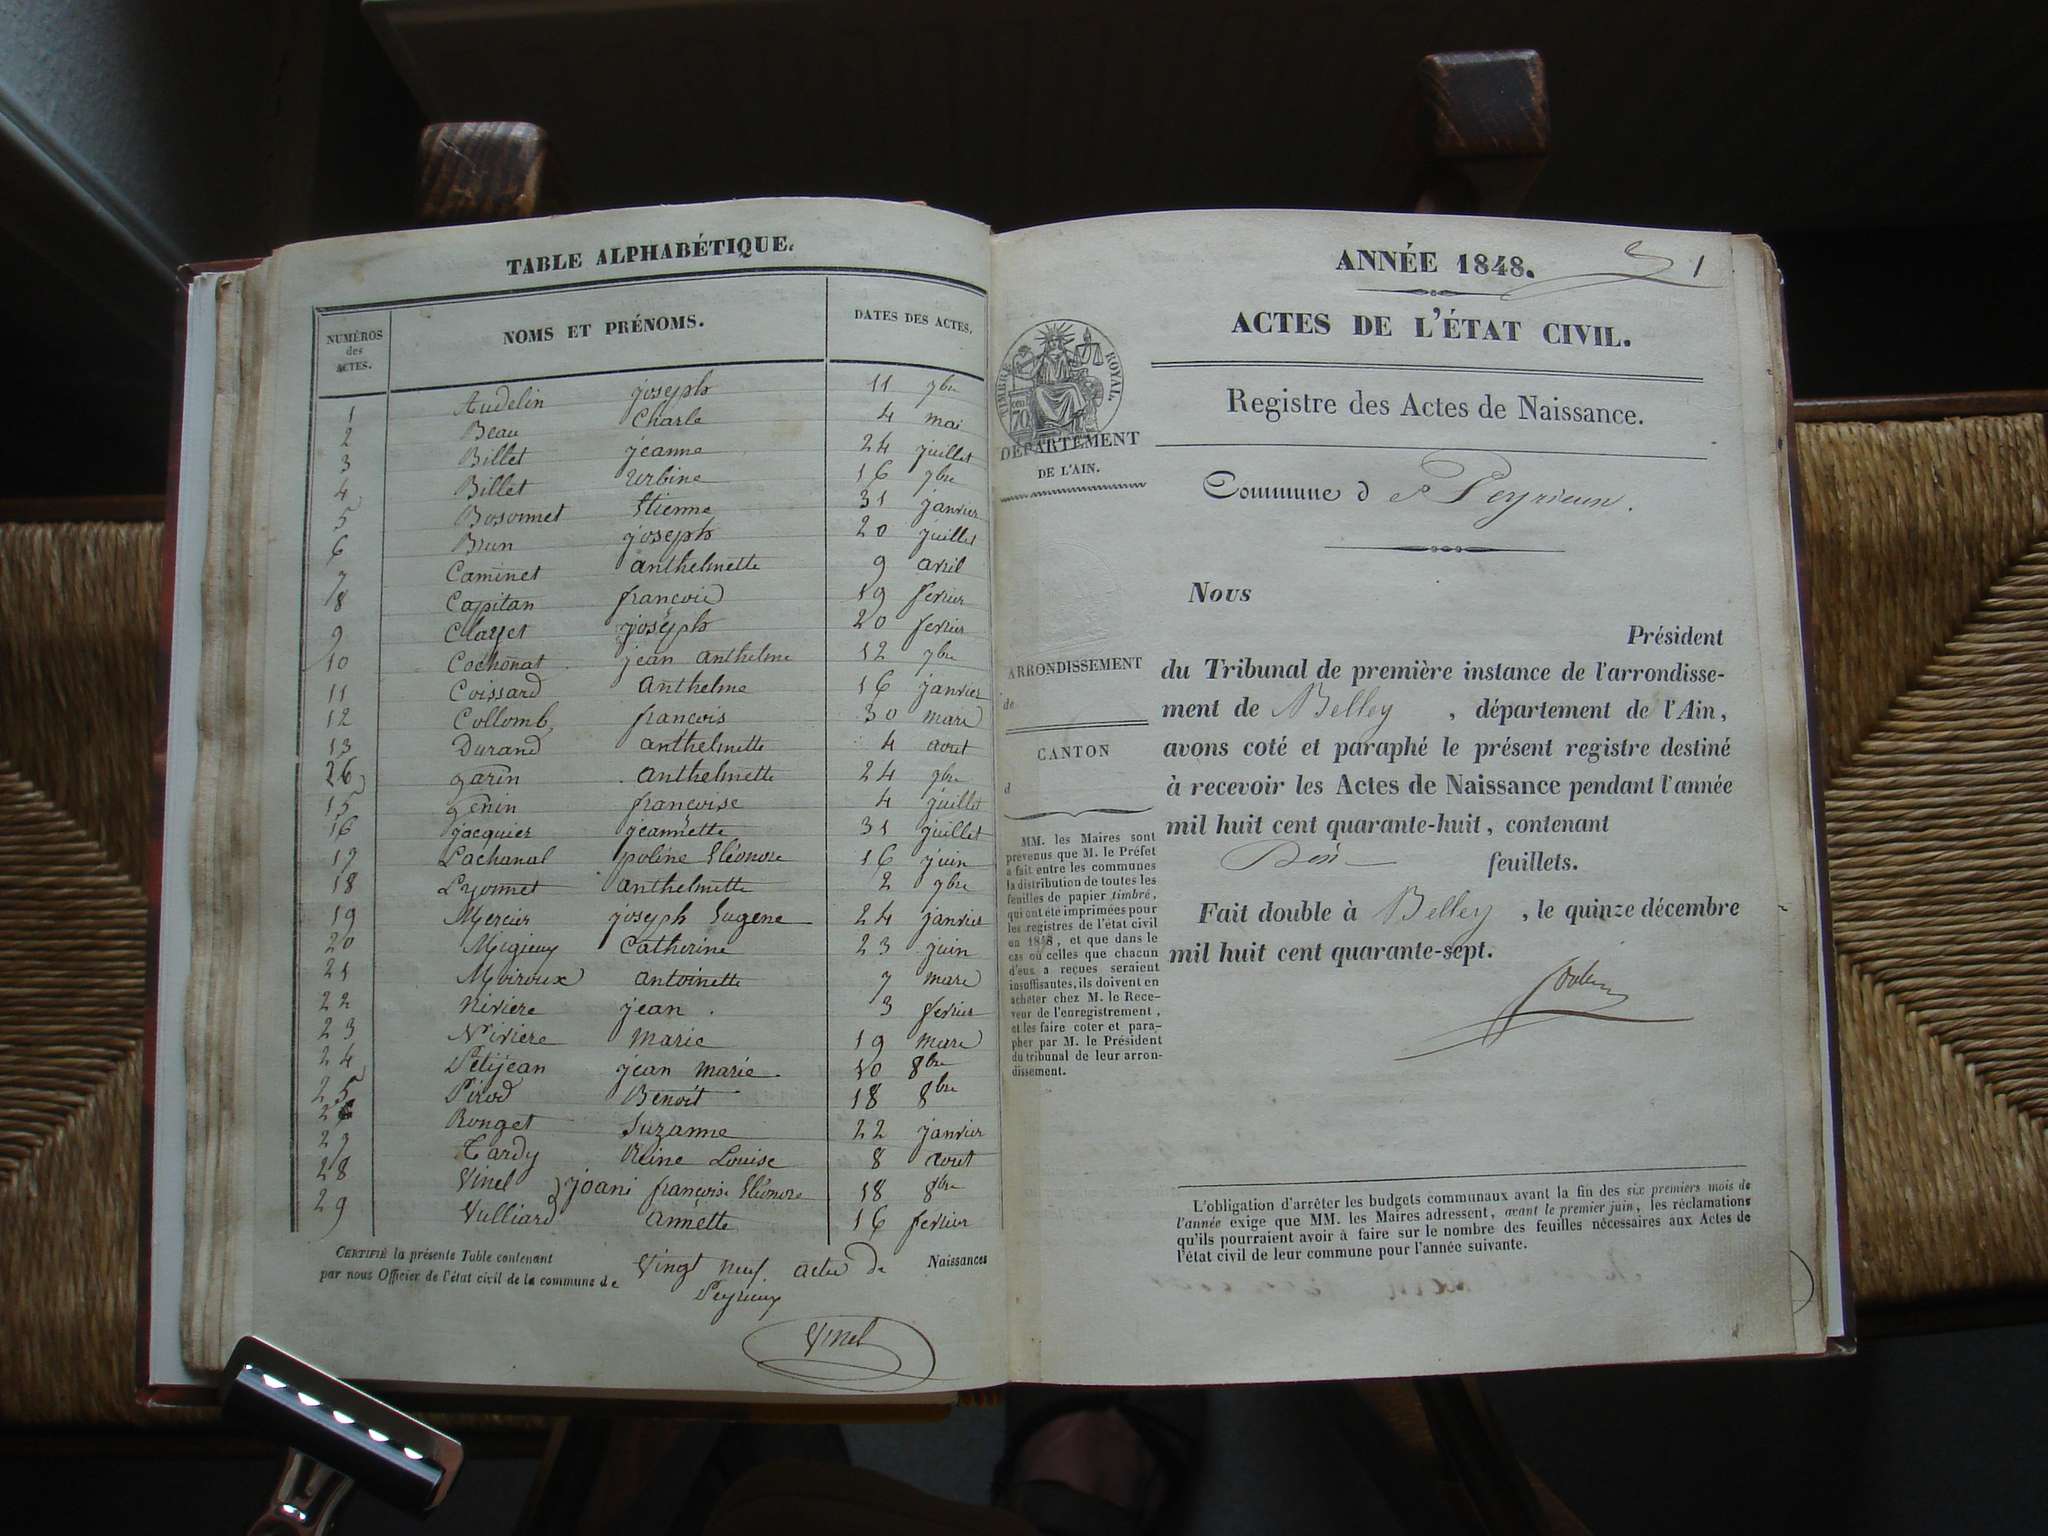 TABLE ALPHABÉTIQUE.
NUMÉROS des ACTES. NOMS ET PRÉNOMS. DATES DES ACTES.
1 Audelin joseph 11 7bre
2 Beau Charle 4 mai
3 Billet jeanne 24 juillet
4 Billet Urbine 16 7bre
5 Bosonnet Etienne 31 janvier
6 Brun joseph 20 juillet
7 Caminet anthelmette 9 avril
8 Capitan francois 19 fevrier
9 Clayet joseph 20 fevrier
10 Cochonat jean anthelme 12 7bre
11 Coissard anthelme 16 janvier
12 Collomb francois 30 mars
13 Durand anthelmette 4 aout
26 garin anthelmette 24 7bre
15 genin francoise 4 juillet
16 jacquier jeannette 31 juillet
17 Lachanal poline Eléonore 16 juin
18 Lyonnet anthelmette 2 7bre
19 Mercier joseph Eugene 24 janvier
20 Migieuy Catherine 23 juin
21 Moiroux antoinette 7 mars
22 Niviere jean 3 fevrier
23 Niviere Marie 19 mars
24 Petijean jean Marie 10 8bre
25 Pirod Benoit 18 8bre
26 Ronget Suzanne 22 janvier
27 Tardy Reine Louise 8 aout
28 Vinel joani françoise Eléonore 18 8bre
29 Vulliard annette 16 fevrier
CERTIFIÉ la présente Table contenant Vingt neuf acte de Naissances
par nous Officier de l'état civil de la commune de Peyrieux
Vinel
ANNÉE 1848. 1
ACTES DE L'ÉTAT CIVIL.
Registre des Actes de Naissance.
TIMBRE ROYAL
70
DÉPARTEMENT
DE L'AIN.
Commune de Peyrieux.
Nous
Président
du Tribunal de première instance de l'arrondisse-
ment de Belley, département de l'Ain,
avons coté et paraphé le présent registre destiné
à recevoir les Actes de Naissance pendant l'année
mil huit cent quarante-huit, contenant
feuillets.
Fait double à Belley, le quinze décembre
mil huit cent quarante-sept.
ARRONDISSEMENT
de
CANTON
d
MM. les Maires sont
prévenus que M. le Préfet
a fait entre les communes
la distribution de toutes les
feuilles de papier timbré,
qui ont été imprimées pour
les registres de l'état civil
en 1848, et que dans le
cas où celles que chacun
d'eux a reçues seraient
insuffisantes, ils doivent en
acheter chez M. le Rece-
veur de l'enregistrement,
et les faire coter et para-
pher par M. le Président
du tribunal de leur arron-
dissement.
L'obligation d'arrêter les budgets communaux avant la fin des six premiers mois de
l'année exige que MM. les Maires adressent, avant le premier juin, les réclamations
qu'ils pourraient avoir à faire sur le nombre des feuilles nécessaires aux Actes de
l'état civil de leur commune pour l'année suivante.